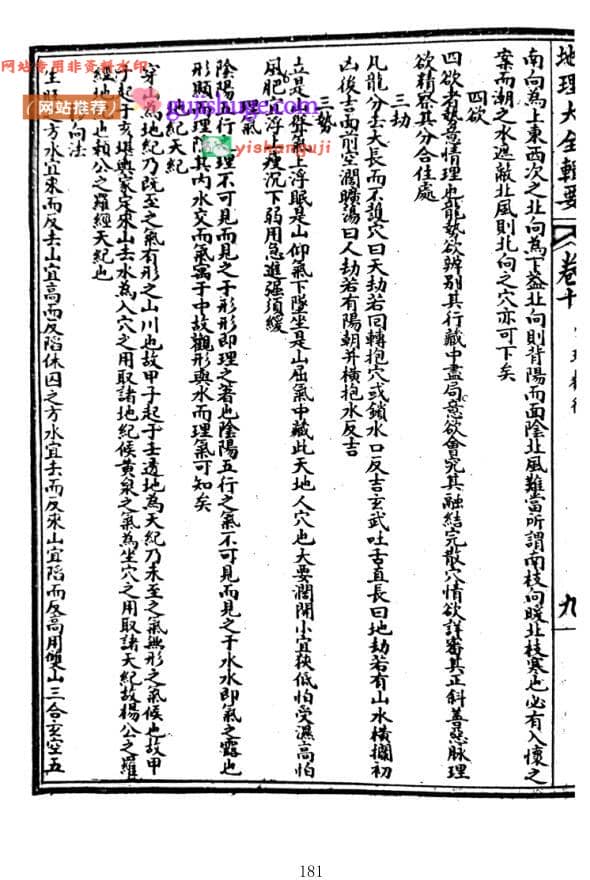 地理大全輯要
卷十
九
南向為上東西次之北向為下葢北向則背陽而面陰北風難當所謂南枝向暖北枝寒也必有入懷之
案而潮之水遮敵北風則北向之穴亦可下矣
四欲
四欲者勢意情理也龍勢欲辨別其行藏中盡局意欲會究其融結完散穴情欲詳審其正斜善惡脉理
欲精察其分合住處
三劫
凡龍分去夫長而不護穴曰天劫若回轉抱穴或鎖水口反吉玄武吐舌直長曰地劫若有山水橫攔初
凶後吉面前空濶曠蕩曰人劫若有陽朝并橫抱水反吉
三勢
立是山聳氣上浮眠是山仰氣下墜坐是山屈氣中藏此天地人穴也大要濶開小宜狹低怕受濕高怕
風肥宜浮上瘦沉下弱用急進强須緩
理氣
陰陽五行之理不可見而見之于形形即理之著也陰陽五行之氣不可見而見之于水水即氣之露也
形顯而理隨其內水交而氣寓于中故觀形與水而理氣可知矣
地紀天紀
穿山為地紀乃既至之氣有形之山川也故甲子起于壬透地為天紀乃未至之氣無形之氣候也故甲
子起于亥堪輿家定來山去水為入穴之用取諸地紀候黄泉之氣為坐穴之用取諸天紀故楊公之羅
經地紀也賴公之羅經天紀也
向法
生旺之方水宜來而反去山宜高而反陷休囚之方水宜去而反來山宜陷而反高用雙山三合玄空五
网站专用非资料水印
（网站推荐）
gujishuge.com
yishanguji
181